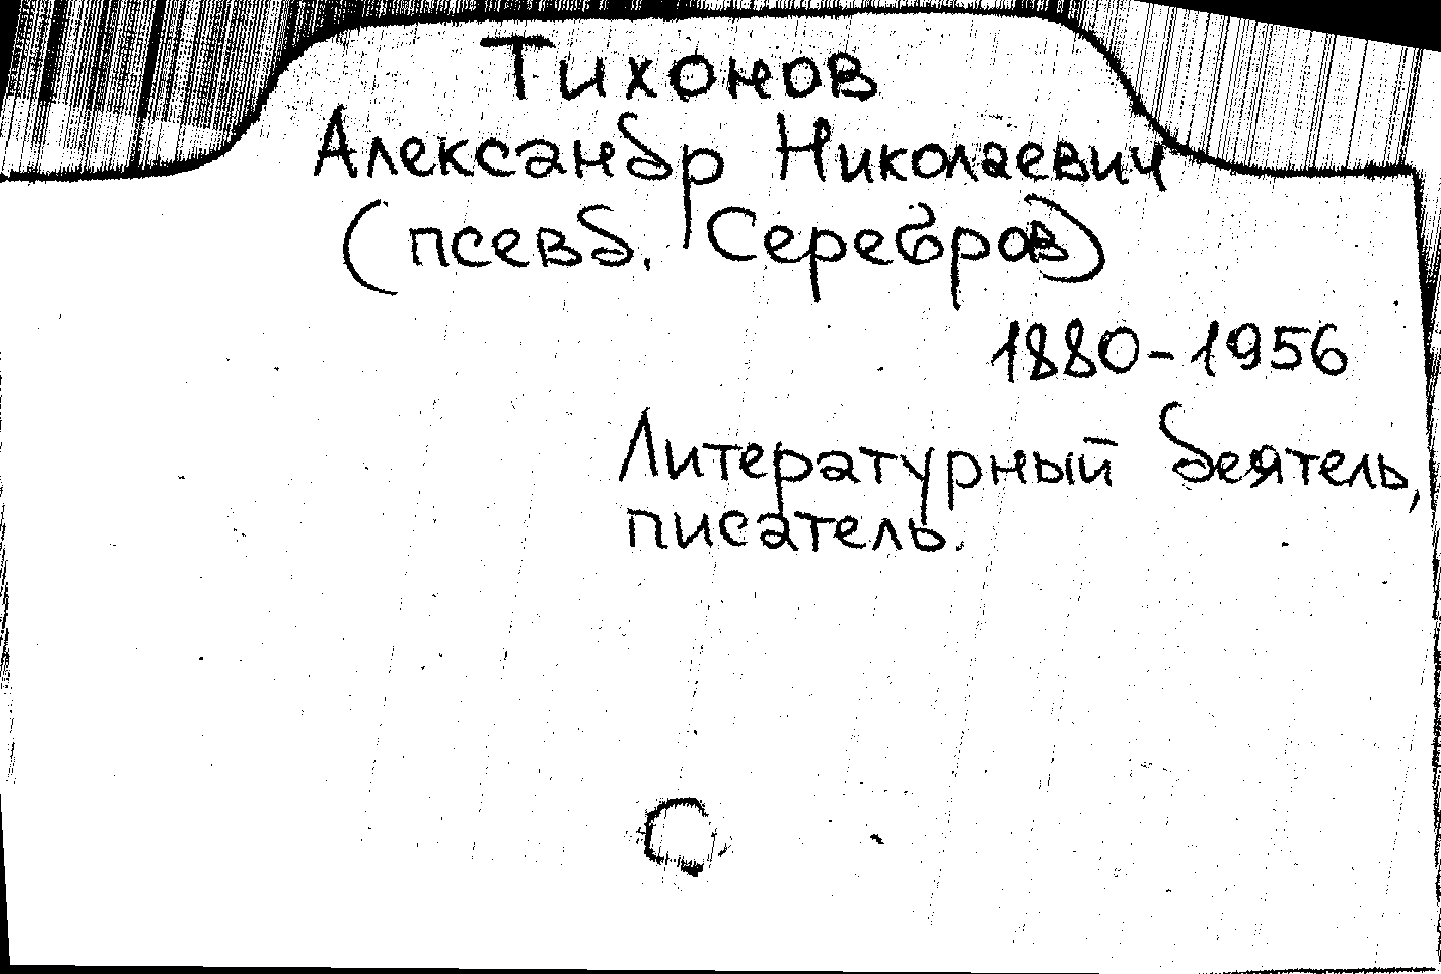 Тихонов
Александр Николаевич
(псевд. Серебров)
1880-1956
Литературный деятель,
писатель.